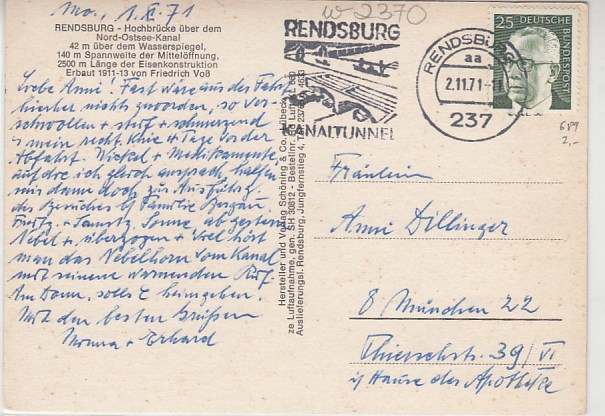 Mo., 1.XI.71
RENDSBURG - Hochbrücke über dem
Nord-Ostsee-Kanal
42 m über dem Wasserspiegel,
140 m Spannweite der Mittelöffnung,
2500 m Länge der Eisenkonstruktion
Erbaut 1911-13 von Friedrich Voß
Liebe Anni! Fast wäre aus der Fahrt
hierher nichts geworden, so ver-
schwollen + steif + schmerzend
mein recht. Knie 4 Tage vor der
Abfahrt. Wickel + Medikamente,
auf die ich gleich ansprach, halfen
mir dann doch zur Ausführg.
des Besuches bei Familie
Freitg. + Samstg. Sonne, ab gestern
Nebel + überzogen + viel hört
man das Nebelhorn vom Kanal
mit seinem warnenden Ruf.
Am Donn. solls heimgehen.
Mit den besten Grüßen
+ Erhard
Hersteller und Verlag Schöning & Co., Lübeck
ze Luftaufnahme, gen. SH 30812 - Bestellnr.
Auslieferungsl. Rendsburg, Jungfernstieg 4, Tel.
W 2370
RENDSBURG
KANALTUNNEL
RENDSBURG
aa
2.11.71
237
25 DEUTSCHE
BUNDESPOST
689
2,-
Fräulein
Anni Dillinger
8 München 22
Thierschstr. 39/VI
i/ Hause der Apotheke